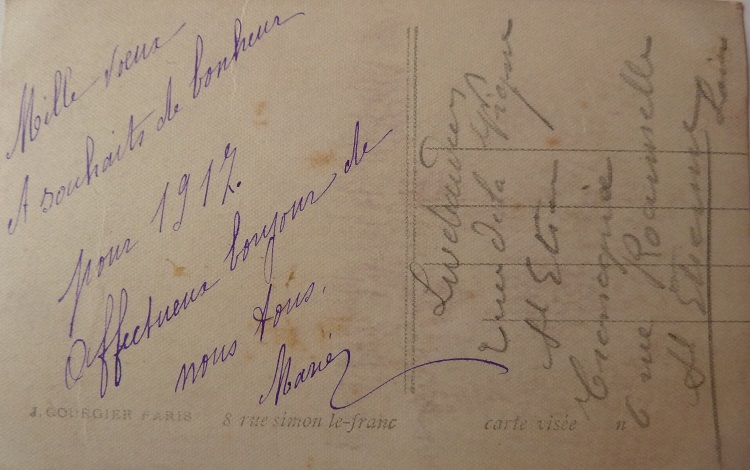 Mille voeux
et souhaits de bonheur
pour 1917.
Affectueux bonjour de
nous tous.
Marie
rue de la
St Etien
6 rue Roannelle
St Etienne
Loire
J. COURGIER PARIS 8 rue simon le-franc carte visée n